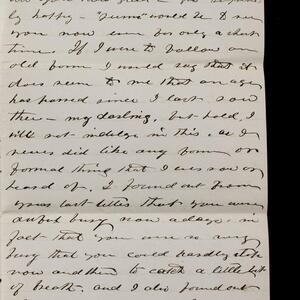 by happy — "seems" would be to see
you now even for only a short
time. If I were to follow an
old form I would say that it
does seem to me that an age
has passed since I last saw
thee — my darling, but hold, I
will not indulge in this, as I
never did like any form or
formal thing that I ever saw or
heard of. I found out from
yours last letter that you were
awful busy now adays, in
fact that you were so very
busy that you could hardly stop
now and then to catch a little bit
of breath, and I also found out